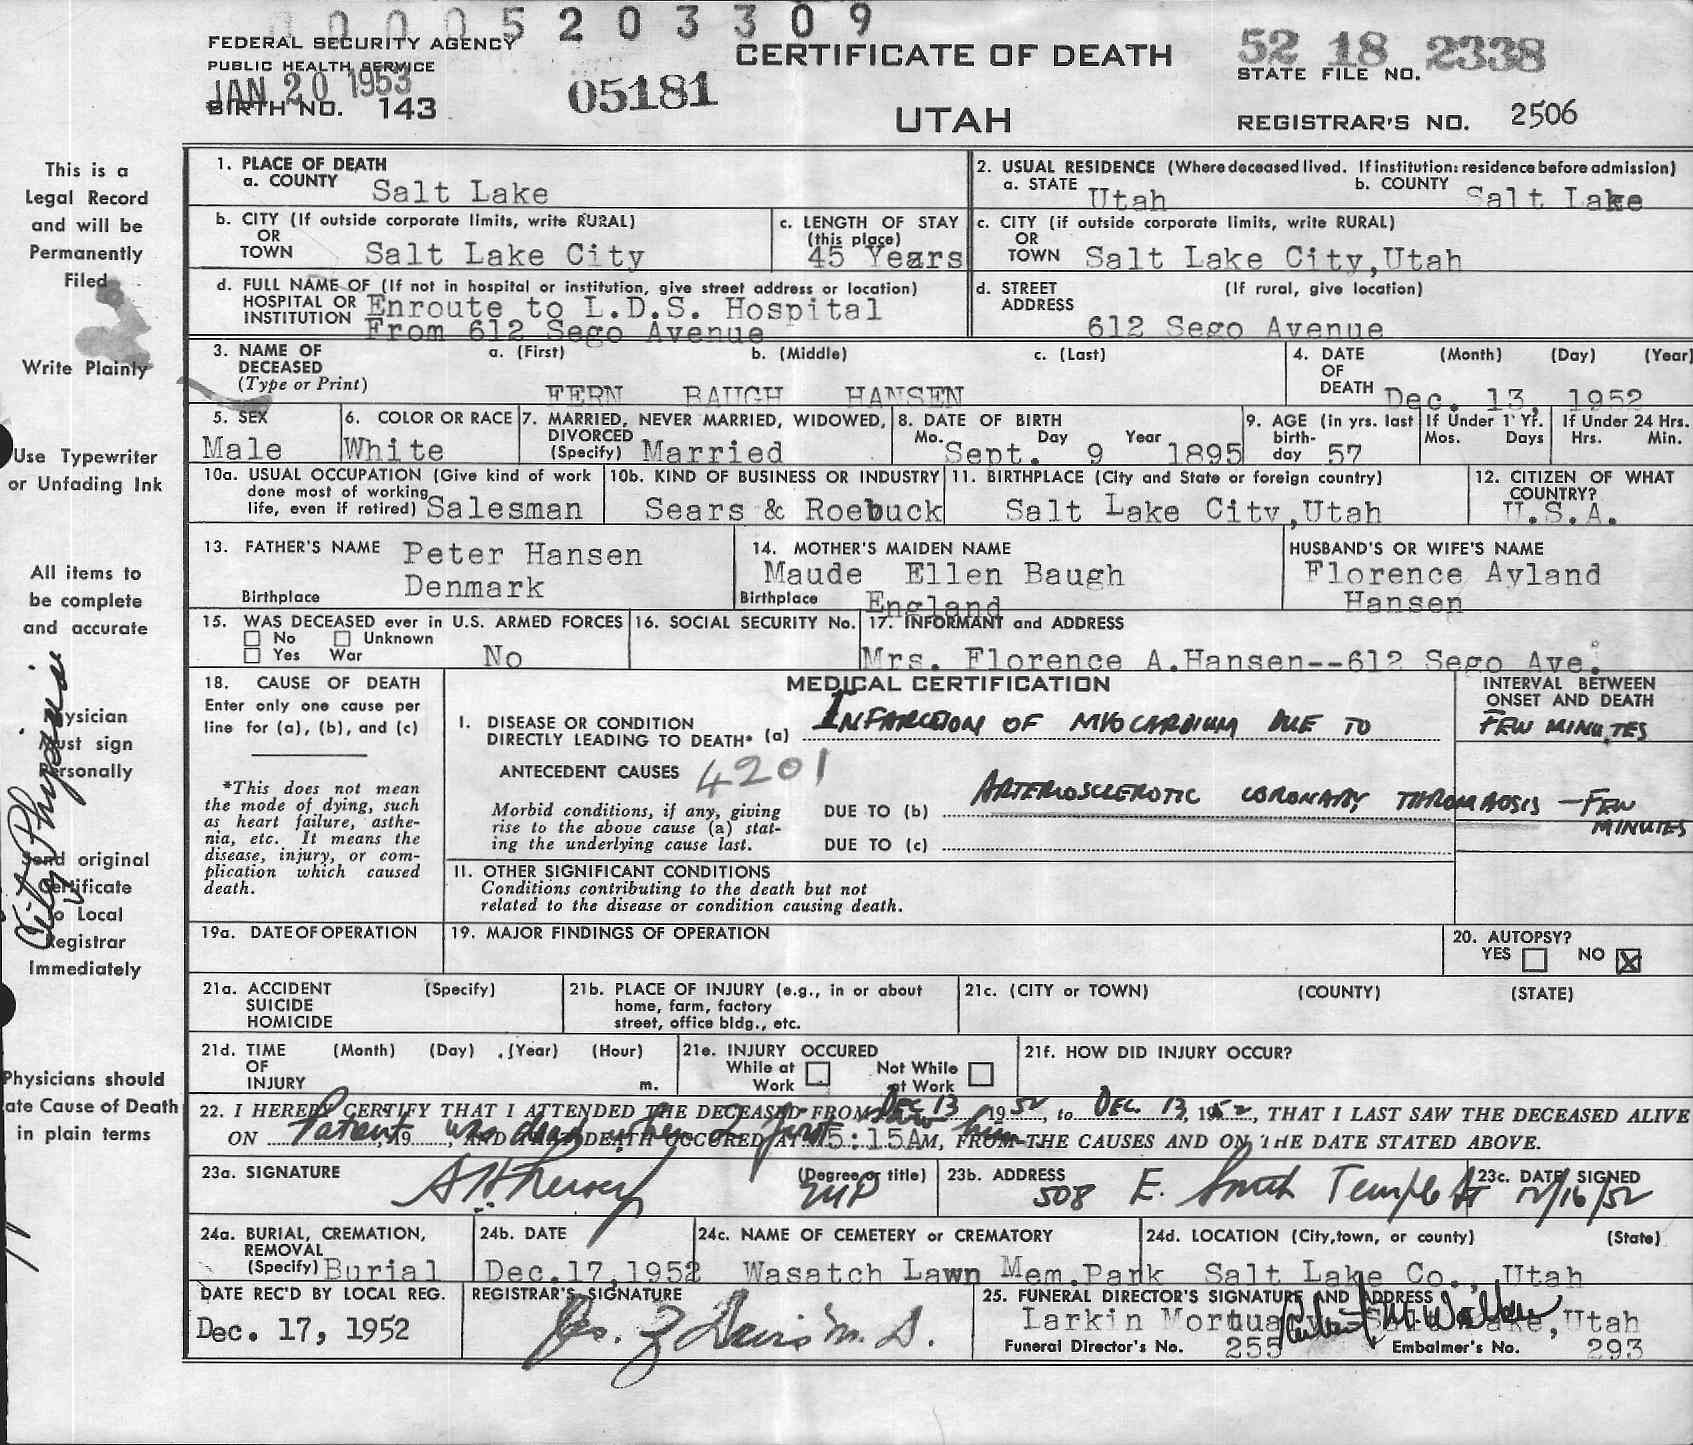 0 0 0 0 5 2 0 3 3 0 9
FEDERAL SECURITY AGENCY
PUBLIC HEALTH SERVICE
JAN 20 1953
BIRTH NO. 143
05181
CERTIFICATE OF DEATH
UTAH
52 18 2338
STATE FILE NO.
REGISTRAR'S NO. 2506
This is a
Legal Record
and will be
Permanently
Filed
Write Plainly
Use Typewriter
or Unfading Ink
All items to
be complete
and accurate
Physician
Must sign
Personally
Send original
Certificate
to Local
Registrar
Immediately
Physicians should
ate Cause of Death
in plain terms
City Physician
1. PLACE OF DEATH
a. COUNTY Salt Lake
2. USUAL RESIDENCE (Where deceased lived. If institution: residence before admission)
a. STATE Utah b. COUNTY Salt Lake
b. CITY (If outside corporate limits, write RURAL)
OR
TOWN Salt Lake City
c. LENGTH OF STAY
(this place)
45 Years
c. CITY (if outside corporate limits, write RURAL)
OR
TOWN Salt Lake City,Utah
d. FULL NAME OF (If not in hospital or institution, give street address or location)
HOSPITAL OR
INSTITUTION Enroute to L.D.S. Hospital
From 612 Sego Avenue
d. STREET (If rural, give location)
ADDRESS
612 Sego Avenue
3. NAME OF a. (First) b. (Middle) c. (Last)
DECEASED
(Type or Print) FERN BAUGH HANSEN
4. DATE (Month) (Day) (Year)
OF
DEATH Dec. 13, 1952
5. SEX
Male
6. COLOR OR RACE
White
7. MARRIED, NEVER MARRIED, WIDOWED,
DIVORCED
(Specify) Married
8. DATE OF BIRTH
Mo. Day Year
Sept. 9 1895
9. AGE (in yrs. last
birth-
day 57
If Under 1 Yr.
Mos. Days
If Under 24 Hrs.
Hrs. Min.
10a. USUAL OCCUPATION (Give kind of work
done most of working
life, even if retired) Salesman
10b. KIND OF BUSINESS OR INDUSTRY
Sears & Roebuck
11. BIRTHPLACE (City and State or foreign country)
Salt Lake City,Utah
12. CITIZEN OF WHAT
COUNTRY?
U.S.A.
13. FATHER'S NAME Peter Hansen
Birthplace Denmark
14. MOTHER'S MAIDEN NAME
Maude Ellen Baugh
Birthplace England
HUSBAND'S OR WIFE'S NAME
Florence Ayland
Hansen
15. WAS DECEASED ever in U.S. ARMED FORCES
No Unknown
Yes War No
16. SOCIAL SECURITY No.
17. INFORMANT and ADDRESS
Mrs. Florence A.Hansen--612 Sego Ave.
18. CAUSE OF DEATH
Enter only one cause per
line for (a), (b), and (c)
*This does not mean
the mode of dying, such
as heart failure, asthe-
nia, etc. It means the
disease, injury, or com-
plication which caused
death.
MEDICAL CERTIFICATION
INTERVAL BETWEEN
ONSET AND DEATH
I. DISEASE OR CONDITION
DIRECTLY LEADING TO DEATH* (a) INFARCTION OF MYOCARDIUM DUE TO
FEW MINUTES
ANTECEDENT CAUSES 4201
Morbid conditions, if any, giving
rise to the above cause (a) stat-
ing the underlying cause last.
DUE TO (b) ARTERIOSCLEROTIC CORONARY THROMBOSIS — FEW
MINUTES
DUE TO (c)
II. OTHER SIGNIFICANT CONDITIONS
Conditions contributing to the death but not
related to the disease or condition causing death.
19a. DATE OF OPERATION
19. MAJOR FINDINGS OF OPERATION
20. AUTOPSY?
YES NO X
21a. ACCIDENT (Specify)
SUICIDE
HOMICIDE
21b. PLACE OF INJURY (e.g., in or about
home, farm, factory
street, office bldg., etc.
21c. (CITY or TOWN) (COUNTY) (STATE)
21d. TIME (Month) (Day) (Year) (Hour)
OF
INJURY m.
21e. INJURY OCCURED
While at Work
Not While at Work
21f. HOW DID INJURY OCCUR?
22. I HEREBY CERTIFY THAT I ATTENDED THE DECEASED FROM DEC 13 1952, to DEC. 13, 1952, THAT I LAST SAW THE DECEASED ALIVE
ON Patient was dead when I first saw him, 19, AND THAT DEATH OCCURED AT 5:15A M, FROM THE CAUSES AND ON THE DATE STATED ABOVE.
23a. SIGNATURE (Degree or title) MD
23b. ADDRESS
508 E. South Temple St
23c. DATE SIGNED
12/16/52
24a. BURIAL, CREMATION,
REMOVAL
(Specify) Burial
24b. DATE
Dec.17,1952
24c. NAME OF CEMETERY OR CREMATORY
Wasatch Lawn Mem.Park
24d. LOCATION (City,town, or county) (State)
Salt Lake Co., Utah
DATE REC'D BY LOCAL REG.
Dec. 17, 1952
REGISTRAR'S SIGNATURE
25. FUNERAL DIRECTOR'S SIGNATURE AND ADDRESS
Larkin Mortuary Salt Lake, Utah
Funeral Director's No. 255 Embalmer's No. 293